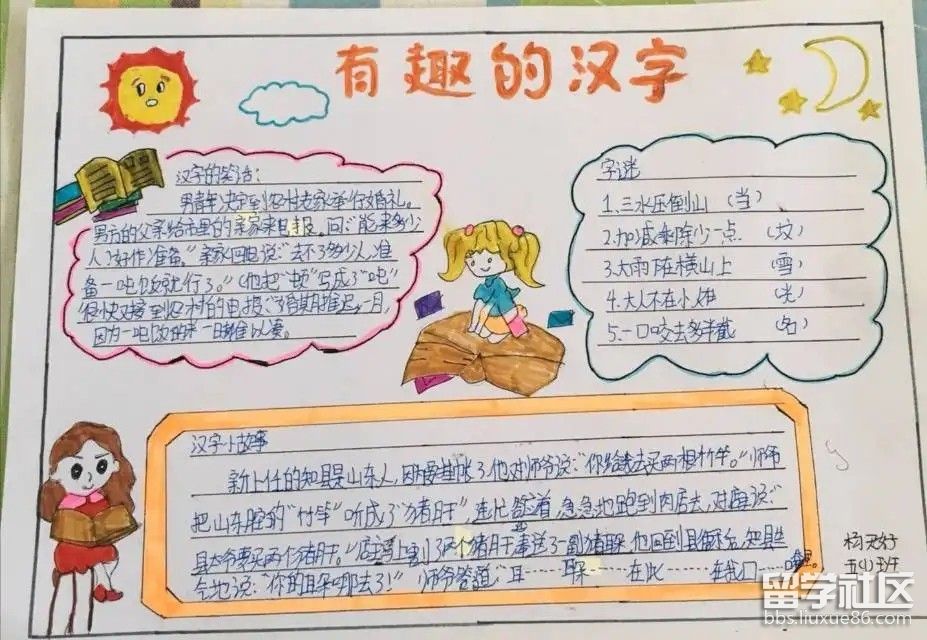 有趣的汉字
汉字的笑话:
男青年决定到农村去家举行婚礼。
男方的父亲给市里的亲家来电报。问:"能来多少
人?好作准备。"亲家回电说:"去不了多少人,准
备一吨饭就行了。"(他把"顿"写成了"吨"
很快又接到农村的电报"婚期推迟一月,
因为一吨饭 一日难以
字谜
1.三水压倒山 (当)
2.加减乘除少一点 (坟)
3.大雨下在横山上 (雪)
4.大人不在小 (光)
5.一口咬去多半截 (名)
汉字小故事
新上任的知县是山东人,因为要挂帐了他对师爷说:"你给我去买两根竹竿。"师爷
把山东腔的"竹竿"听成了"猪肝",连忙答着,急急地跑到肉店去,对店主说:"
县太爷要买两个猪肝。"店主马上割了两个猪肝,奉送了一副猪耳。他回到县衙后,知县生
气地说:"你的耳朵哪去了!"师爷答道"耳……耳朵……在此……在我口……里。
五(4)班
留学社区
bbs.liuxue86.com